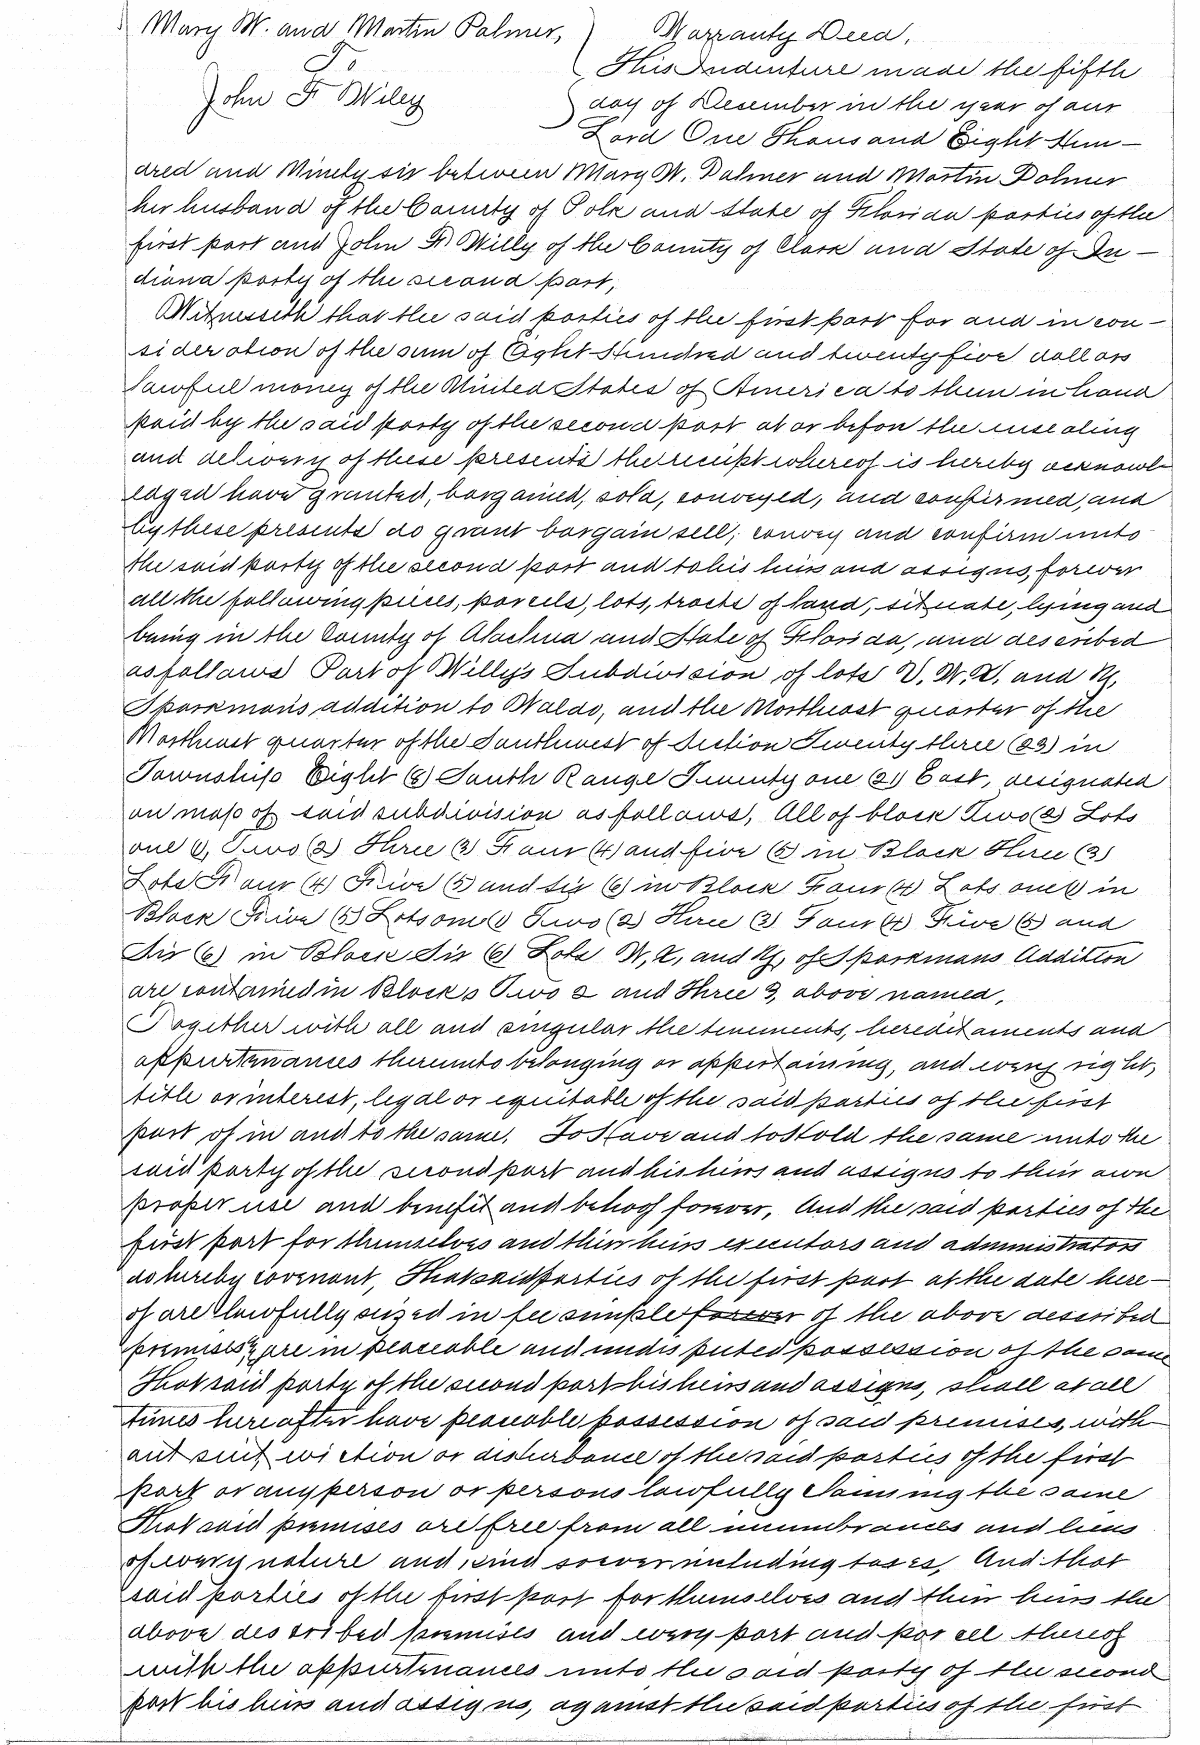 Mary W. and Martin Palmer,
To
John F Wiley
Warranty Deed,
This Indenture made the fifth
day of December in the year of our
Lord One Thousand Eight Hun-
dred and Ninety six between Mary W. Palmer and Martin Palmer
her husband of the County of Polk and State of Florida parties of the
first part and John F. Willy of the County of Clark and State of In-
diana party of the second part,
Witnesseth that the said parties of the first part for and in con-
sideration of the sum of Eight Hundred and twenty five dollars
lawful money of the United States of America to them in hand
paid by the said party of the second part at or before the ensealing
and delivery of these presents the receipt whereof is hereby acknowl-
edged have granted, bargained, sold, conveyed, and confirmed, and
by these presents do grant bargain sell, convey and confirm unto
the said party of the second part and to his heirs and assigns, forever
all the following pieces, parcels, lots, tracts of land, situate, lying and
being in the County of Alachua and State of Florida, and described
as follows Part of Willy's Subdivision of lots V. W. X. and Y.
Sparkman's addition to Waldo, and the Northeast quarter of the
Northeast quarter of the Southwest of Section Twenty three (23) in
Township Eight (8) South Range Twenty one (21) East, designated
on map of said subdivision as follows, All of block Two (2) Lots
one (1), Two (2) Three (3) Four (4) and five (5) in Block Three (3)
Lots Four (4) Five (5) and six (6) in Block Four (4) Lots one (1) in
Block Five (5) Lots one (1) Two (2) Three (3) Four (4) Five (5) and
Six (6) in Block Six (6) Lots W, X, and Y, of Sparkmans Addition
are contained in Blocks Two 2 and Three 3, above named,
Together with all and singular the tenements, hereditaments and
appurtenances thereunto belonging or appertaining, and every right,
title or interest, legal or equitable of the said parties of the first
part of in and to the same. To Have and to Hold the same unto the
said party of the second part and his heirs and assigns to their own
proper use and benefit and behoof forever, And the said parties of the
first part for themselves and their heirs executors and administrators
do hereby covenant, That said parties of the first part at the date here-
of are lawfully seized in fee simple forever of the above described
premises, & are in peaceable and undisputed possession of the same
That said party of the second part his heirs and assigns, shall at all
times hereafter have peaceable possession of said premises, with
out suit eviction or disturbance of the said parties of the first
part or any person or persons lawfully claiming the same
That said premises are free from all incumbrances and liens
of every nature and kind soever including taxes, And that
said parties of the first part for themselves and their heirs the
above described premises and every part and parcel thereof
with the appurtenances unto the said party of the second
part his heirs and assigns, against the said parties of the first